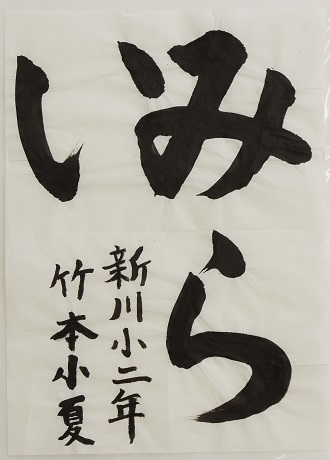 みら
い
新川小二年
竹本小夏